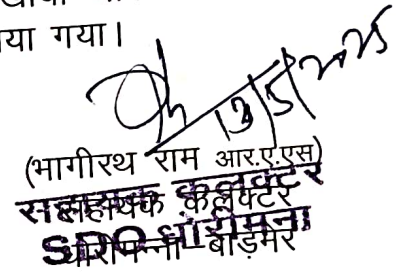 या गया।
13/5/2025
(भागीरथ राम आर.ए.एस)
सहायक कलेक्टर
सहायक कलेक्टर
SDO धोरीमना
धोरीमन्ना-बाड़मेर